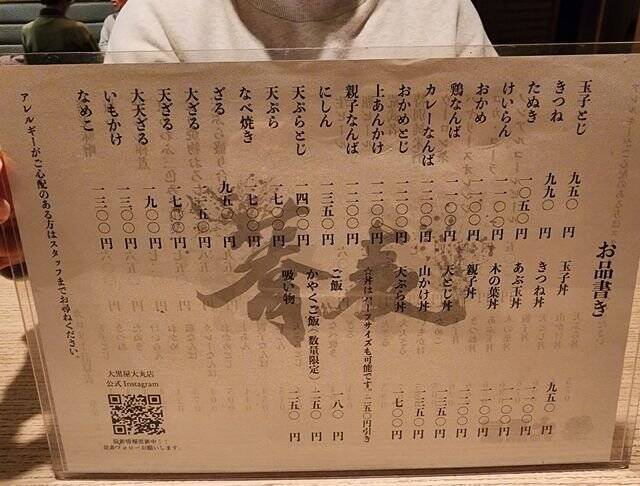 お品書き
玉子とじ 九五〇円
きつね 九九〇円
たぬき 一〇五〇円
けいらん 一一〇〇円
おかめ 一一〇〇円
鶏なんば 一一〇〇円
カレーなんば 一二〇〇円
おかめとじ 一二〇〇円
上あんかけ 一二〇〇円
親子なんば 一二〇〇円
にしん 一三五〇円
天ぷらとじ 一四〇〇円
天ぷら 一七〇〇円
なべ焼き 一七〇〇円
ざる 九五〇円
大ざる 一二五〇円
天ざる 一七〇〇円
大天ざる 一九〇〇円
いもかけ 一三〇〇円
なめこ 一三〇〇円
玉子丼 九五〇円
きつね丼 一一〇〇円
あぶ玉丼 一一〇〇円
木の葉丼 一一〇〇円
親子丼 一二〇〇円
天とじ丼 一三五〇円
山かけ丼 一三五〇円
天ぷら丼 一七〇〇円
☆丼はハーフサイズも可能です。二五〇円引き
ご飯 一八〇円
かやくご飯(数量限定) 二五〇円
吸い物 二五〇円
アレルギーがご心配のある方はスタッフまでお尋ねください。
大黒屋大丸店
公式Instagram
最新情報更新中!!
是非フォローお願いします。
蕎麦